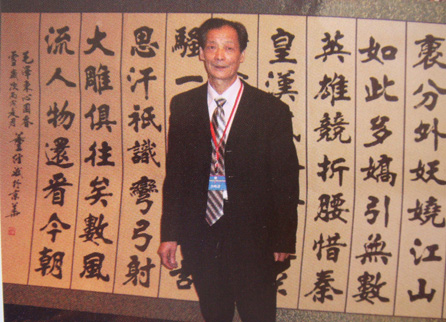 裹分外妖嬈江山
如此多嬌引無數
英雄競折腰惜秦
皇漢
騷一
思汗祇識彎弓射
大雕俱往矣數風
流人物還看今朝
毛澤東沁園春